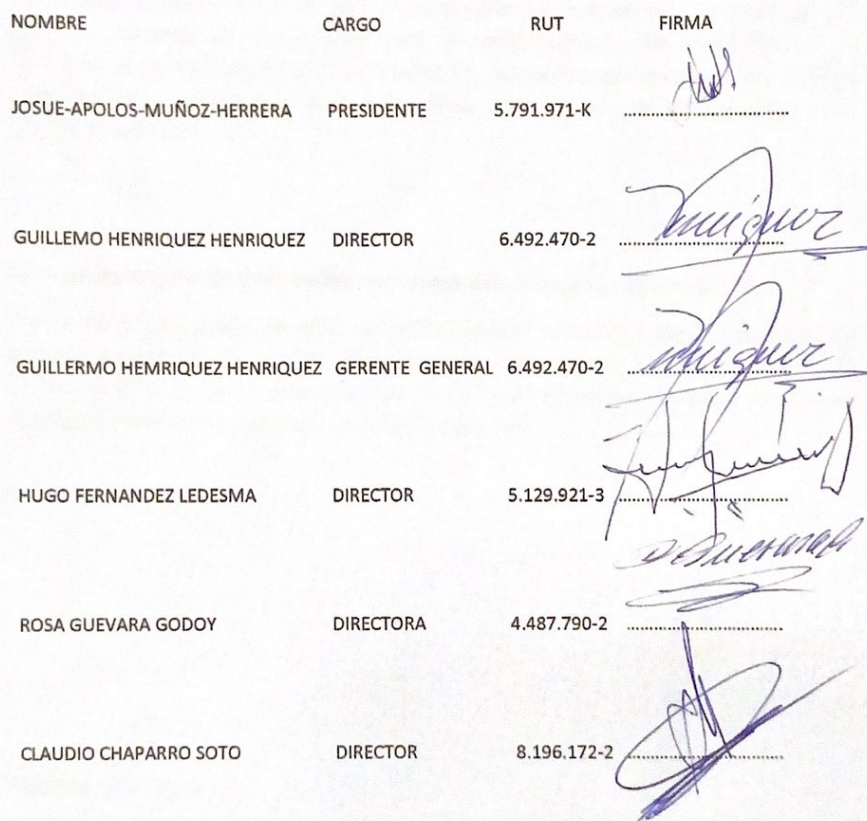 NOMBRE CARGO RUT FIRMA
JOSUE-APOLOS-MUÑOZ-HERRERA PRESIDENTE 5.791.971-K ................................
GUILLEMO HENRIQUEZ HENRIQUEZ DIRECTOR 6.492.470-2 ................................
GUILLERMO HEMRIQUEZ HENRIQUEZ GERENTE GENERAL 6.492.470-2 ................................
HUGO FERNANDEZ LEDESMA DIRECTOR 5.129.921-3 ................................
ROSA GUEVARA GODOY DIRECTORA 4.487.790-2 ................................
CLAUDIO CHAPARRO SOTO DIRECTOR 8.196.172-2 ................................